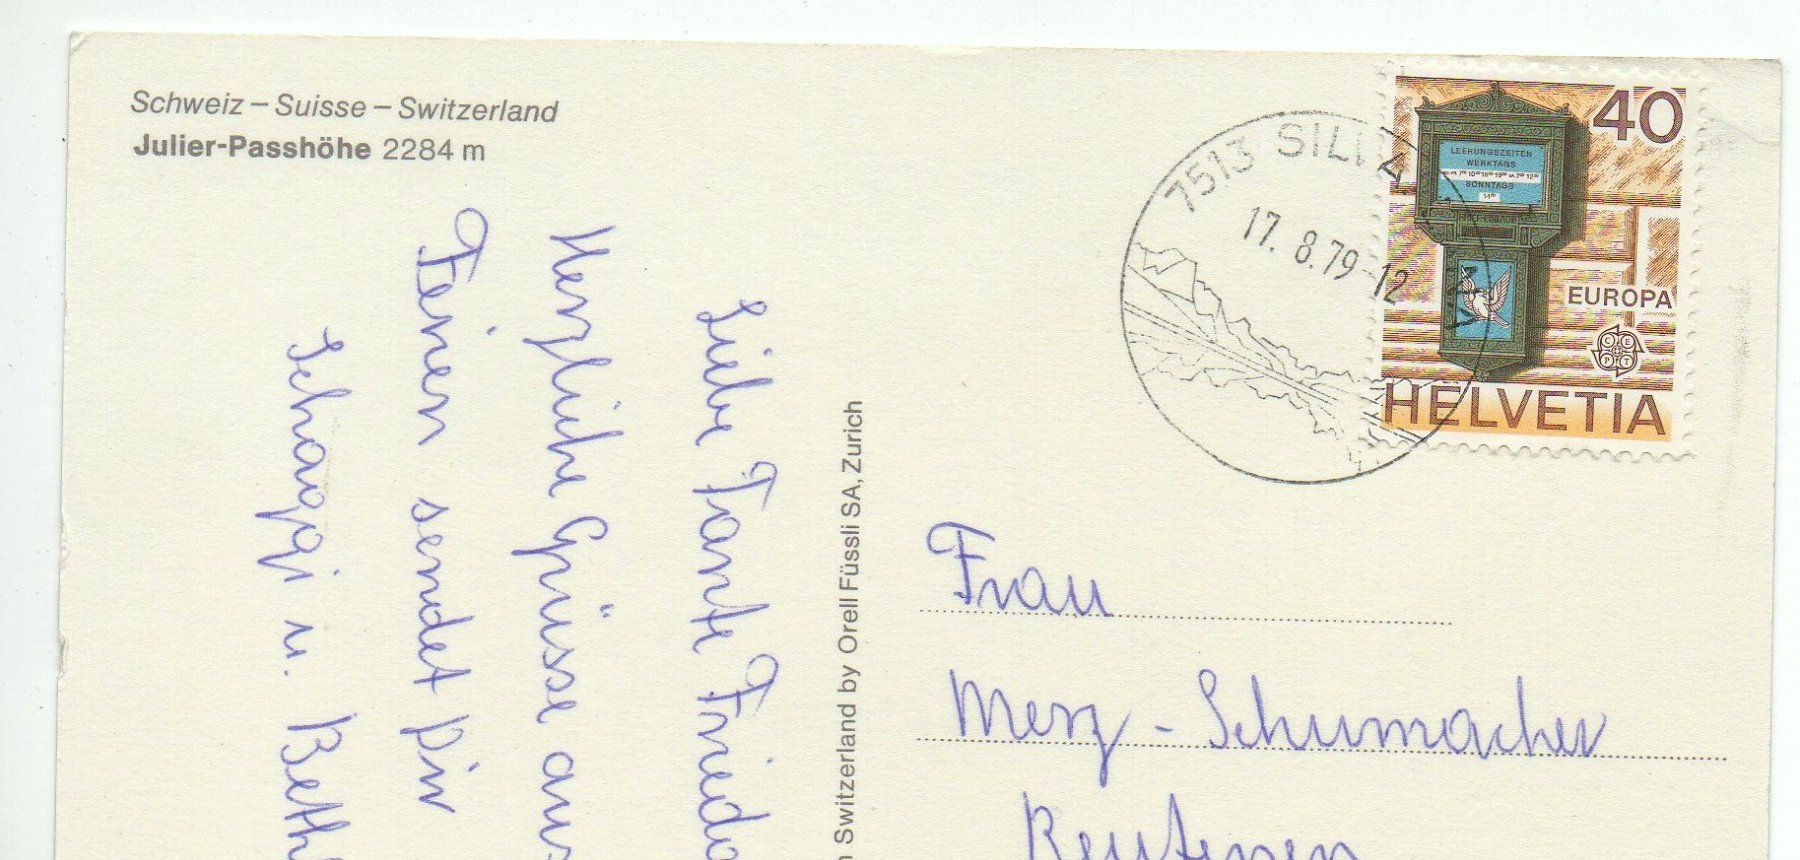 Schweiz – Suisse – Switzerland
Julier-Passhöhe 2284 m
Liebe Tante Frieda
Herzliche Grüsse aus
Ferien sendet Dir
Schaggi u. Beth
Switzerland by Orell Füssli SA, Zurich
7513 SILVA
17. 8.79-12
40
LEERUNGSZEITEN
WERKTAGS
SONNTAGS
EUROPA
CEPT
HELVETIA
Frau
Merz - Schumacher